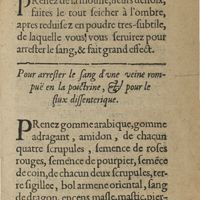 Prenez de la mousse, deux de noix,
faites le tout seicher à l'ombre,
apres reduisez en poudre tres-subtile,
de laquelle vous vous seruirez pour
arrester le sang, & fait grand effect.
Pour arrester le sang d'vne veine rom-
puë en la poictrine, & pour le
flux dissenterique.
PRenez gomme arabique, gomme
adragant, amidon, de chacun
quatre scrupules, semence de roses
rouges, semence de pourpier, seméce
de coin, de chacun deux scrupules, ter-
re sigillee, bol armene oriental, sang
de dragon, encens masle, mastic, pier-